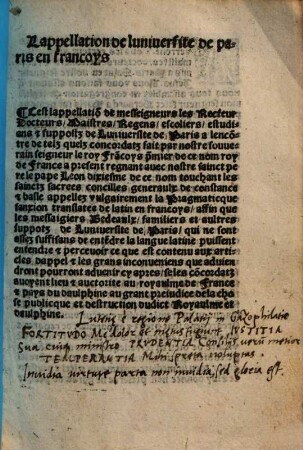 Lappellation de luniuersite de pa-
ris en francoys
¶ Cest lappellatiõ de messeigneurs les Recteur
Docteurs/ Maistres/ Regens/ escoliers/ estudi
ans & suppostz de Luniuersite de Paris a lencõ-
tre de telz quelz concordatz fait par nostre souue-
rain seigneur le roy Frãcoys p̃mier de ce nom roy
de France a present regnant auec nostre sainct pe
re le pape Leon dixiesme de ce nom touchant les
sainctz sacrez concilles generaulx de constance
& basle appellez vulgairement la Pragmatique
sanxion translatez de latin en francoys/ affin que
les messagiers Bedeaulx/ familiers et autres
suppotz de Luniuersite de Paris/ qui ne sont
assez suffisans de entẽdre la langue latine puissent
entendre & perceuoir ce que est contenu aux arti-
cles dappel & les grans inconueniens que aduien
drent pourront aduenir cy apres/ se les cõcordatz
auoyent lieu & auctorite au royaulme de France
& pays du daulphine au grant preiudice de la cho
se publique et destruction dudict Royaulme et
daulphine.
Lutetiæ e regione Palatij in Gazophilatio
FORTITVDO Me dolor et fugiunt IVSTITIA
Sua cuiq; ministro PRVDENTIA Consilijs
TEMPERANTIA Mihi spreta voluptas
Inuidia virtute parta non inuidia, sed gloria est.